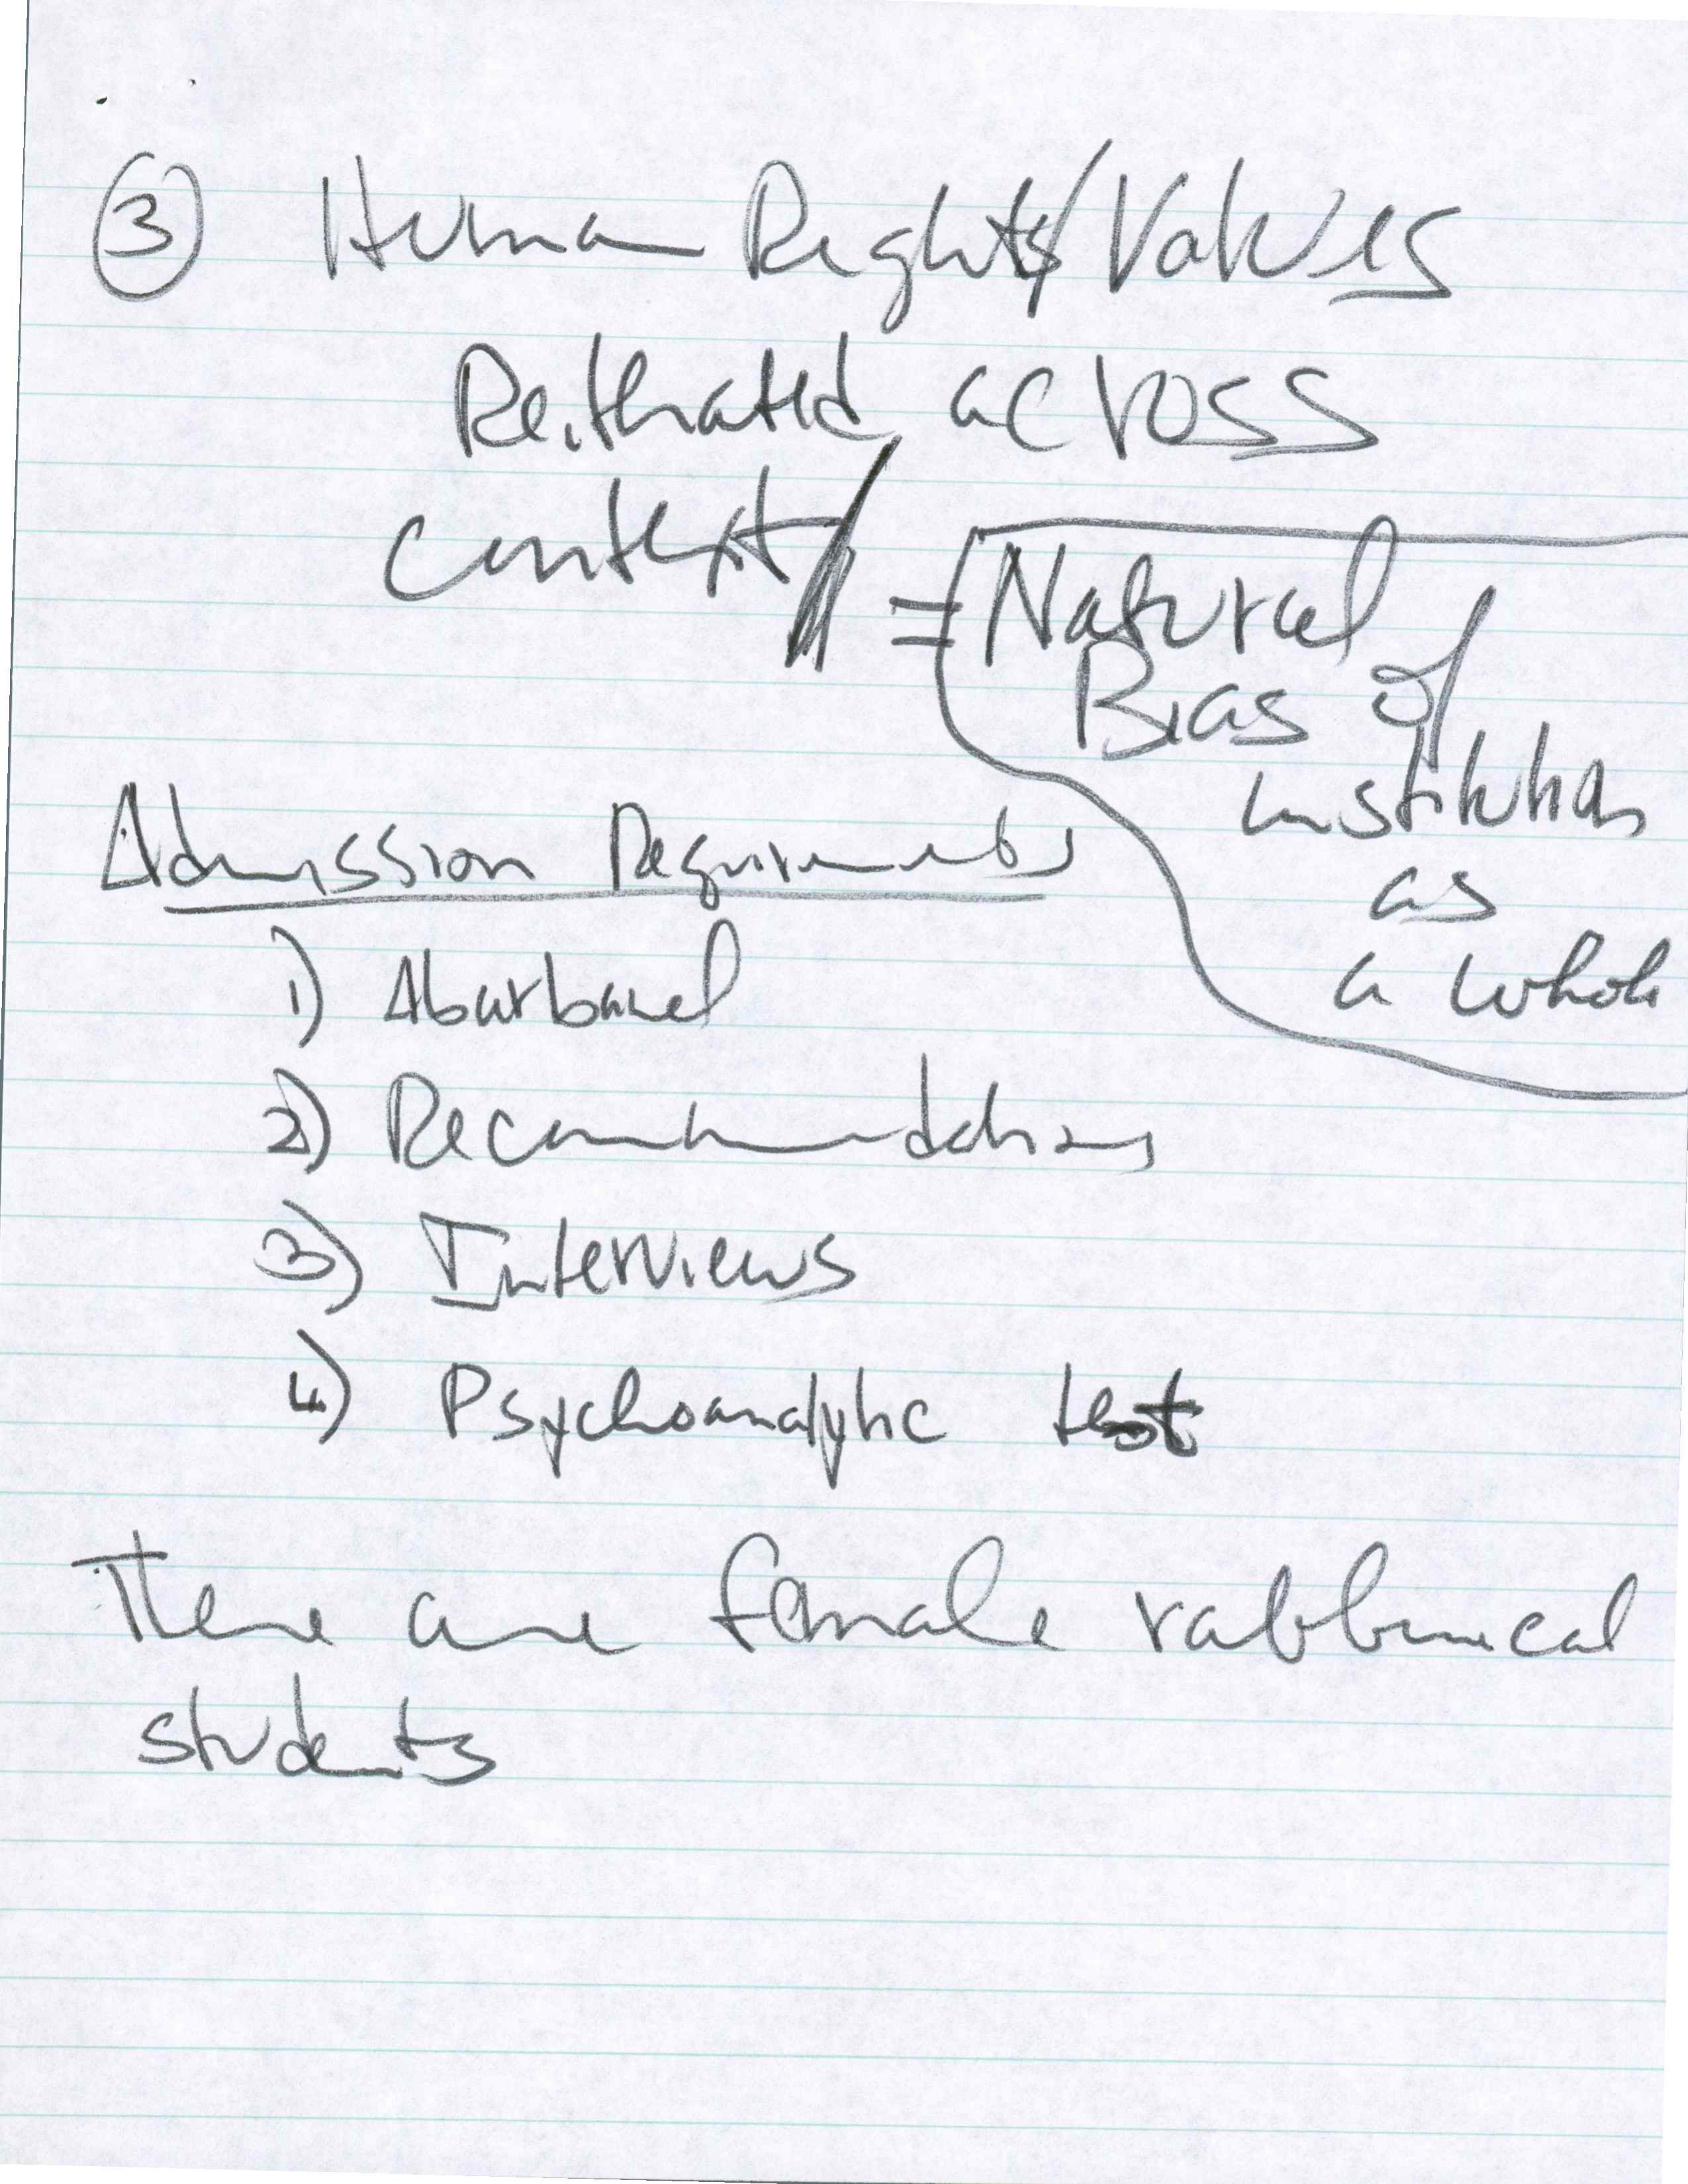 ③ Human Rights/Values
Reiterated across
context
= Natural
Bias of
institution
as
a whole
Admission Requirements
1) Abarbanel
2) Recommendations
3) Interviews
4) Psychoanalytic test
There are female rabbinical
students